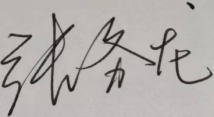 张务龙